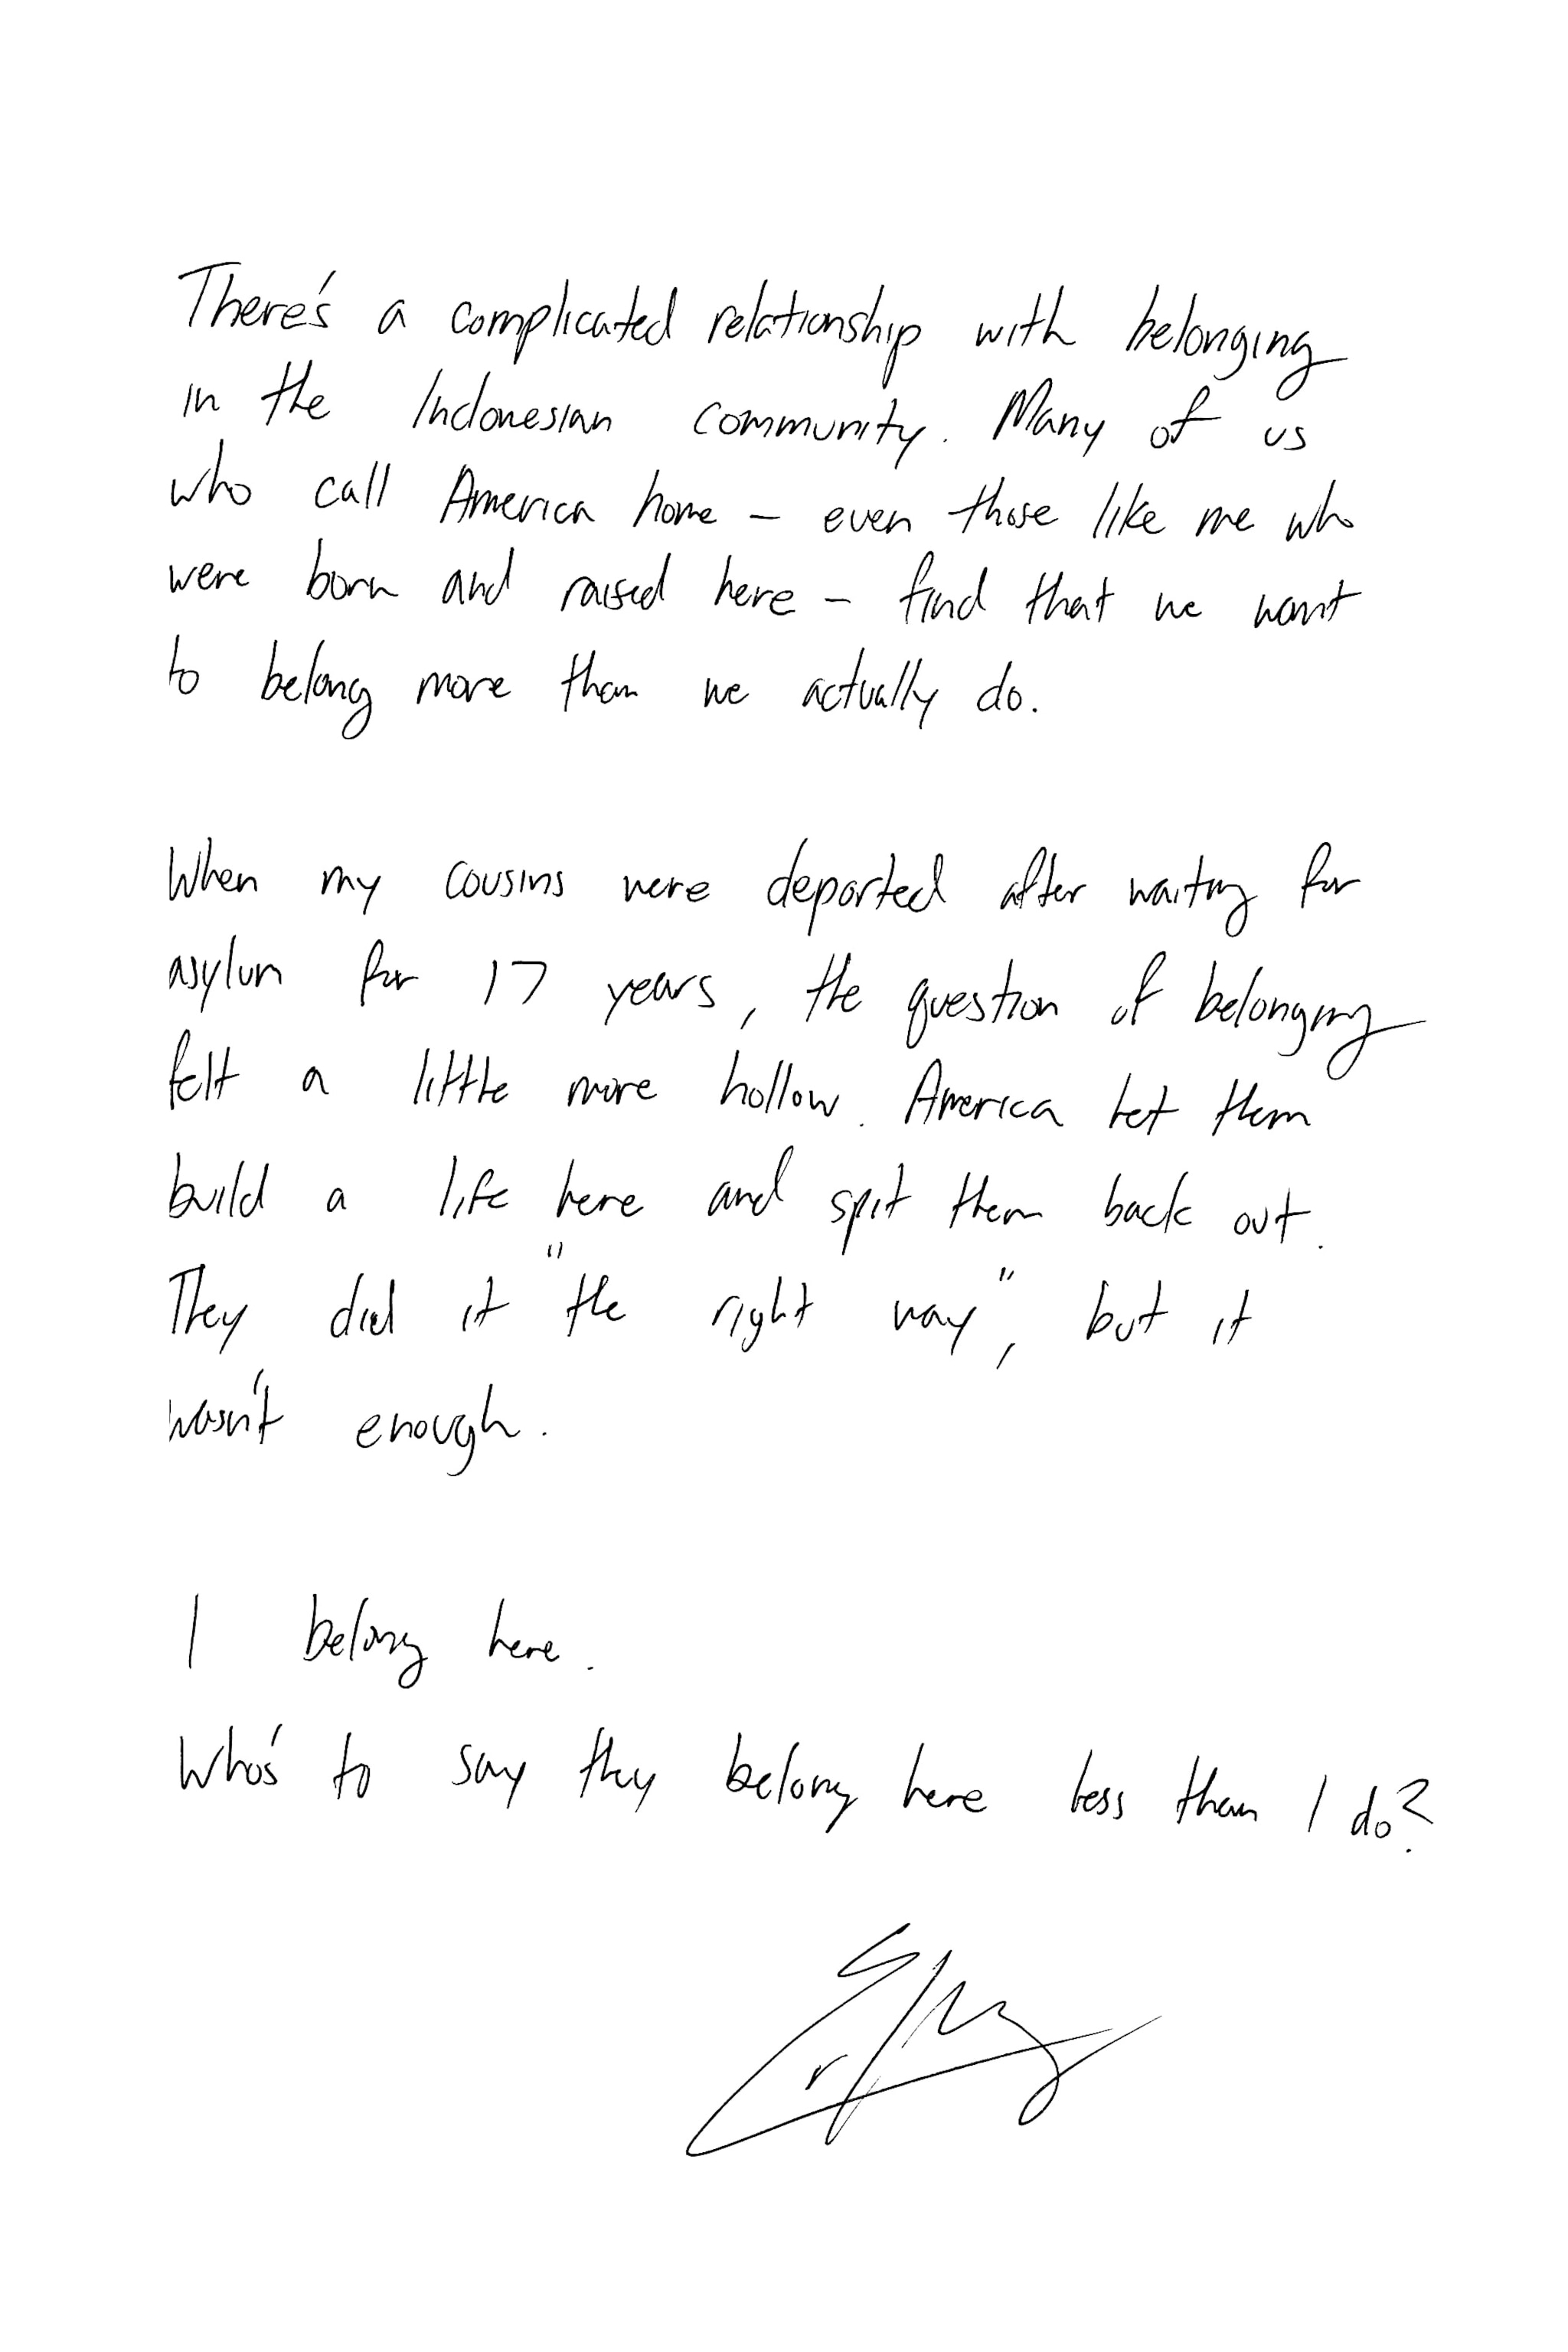 There's a complicated relationship with belonging
in the Indonesian community. Many of us
who call America home - even those like me who
were born and raised here - find that we want
to belong more than we actually do.
When my cousins were deported after waiting for
asylum for 17 years, the question of belonging
felt a little more hollow. America let them
build a life here and spit them back out.
They did it "the right way", but it
wasn't enough.
I belong here.
Who's to say they belong here less than I do?